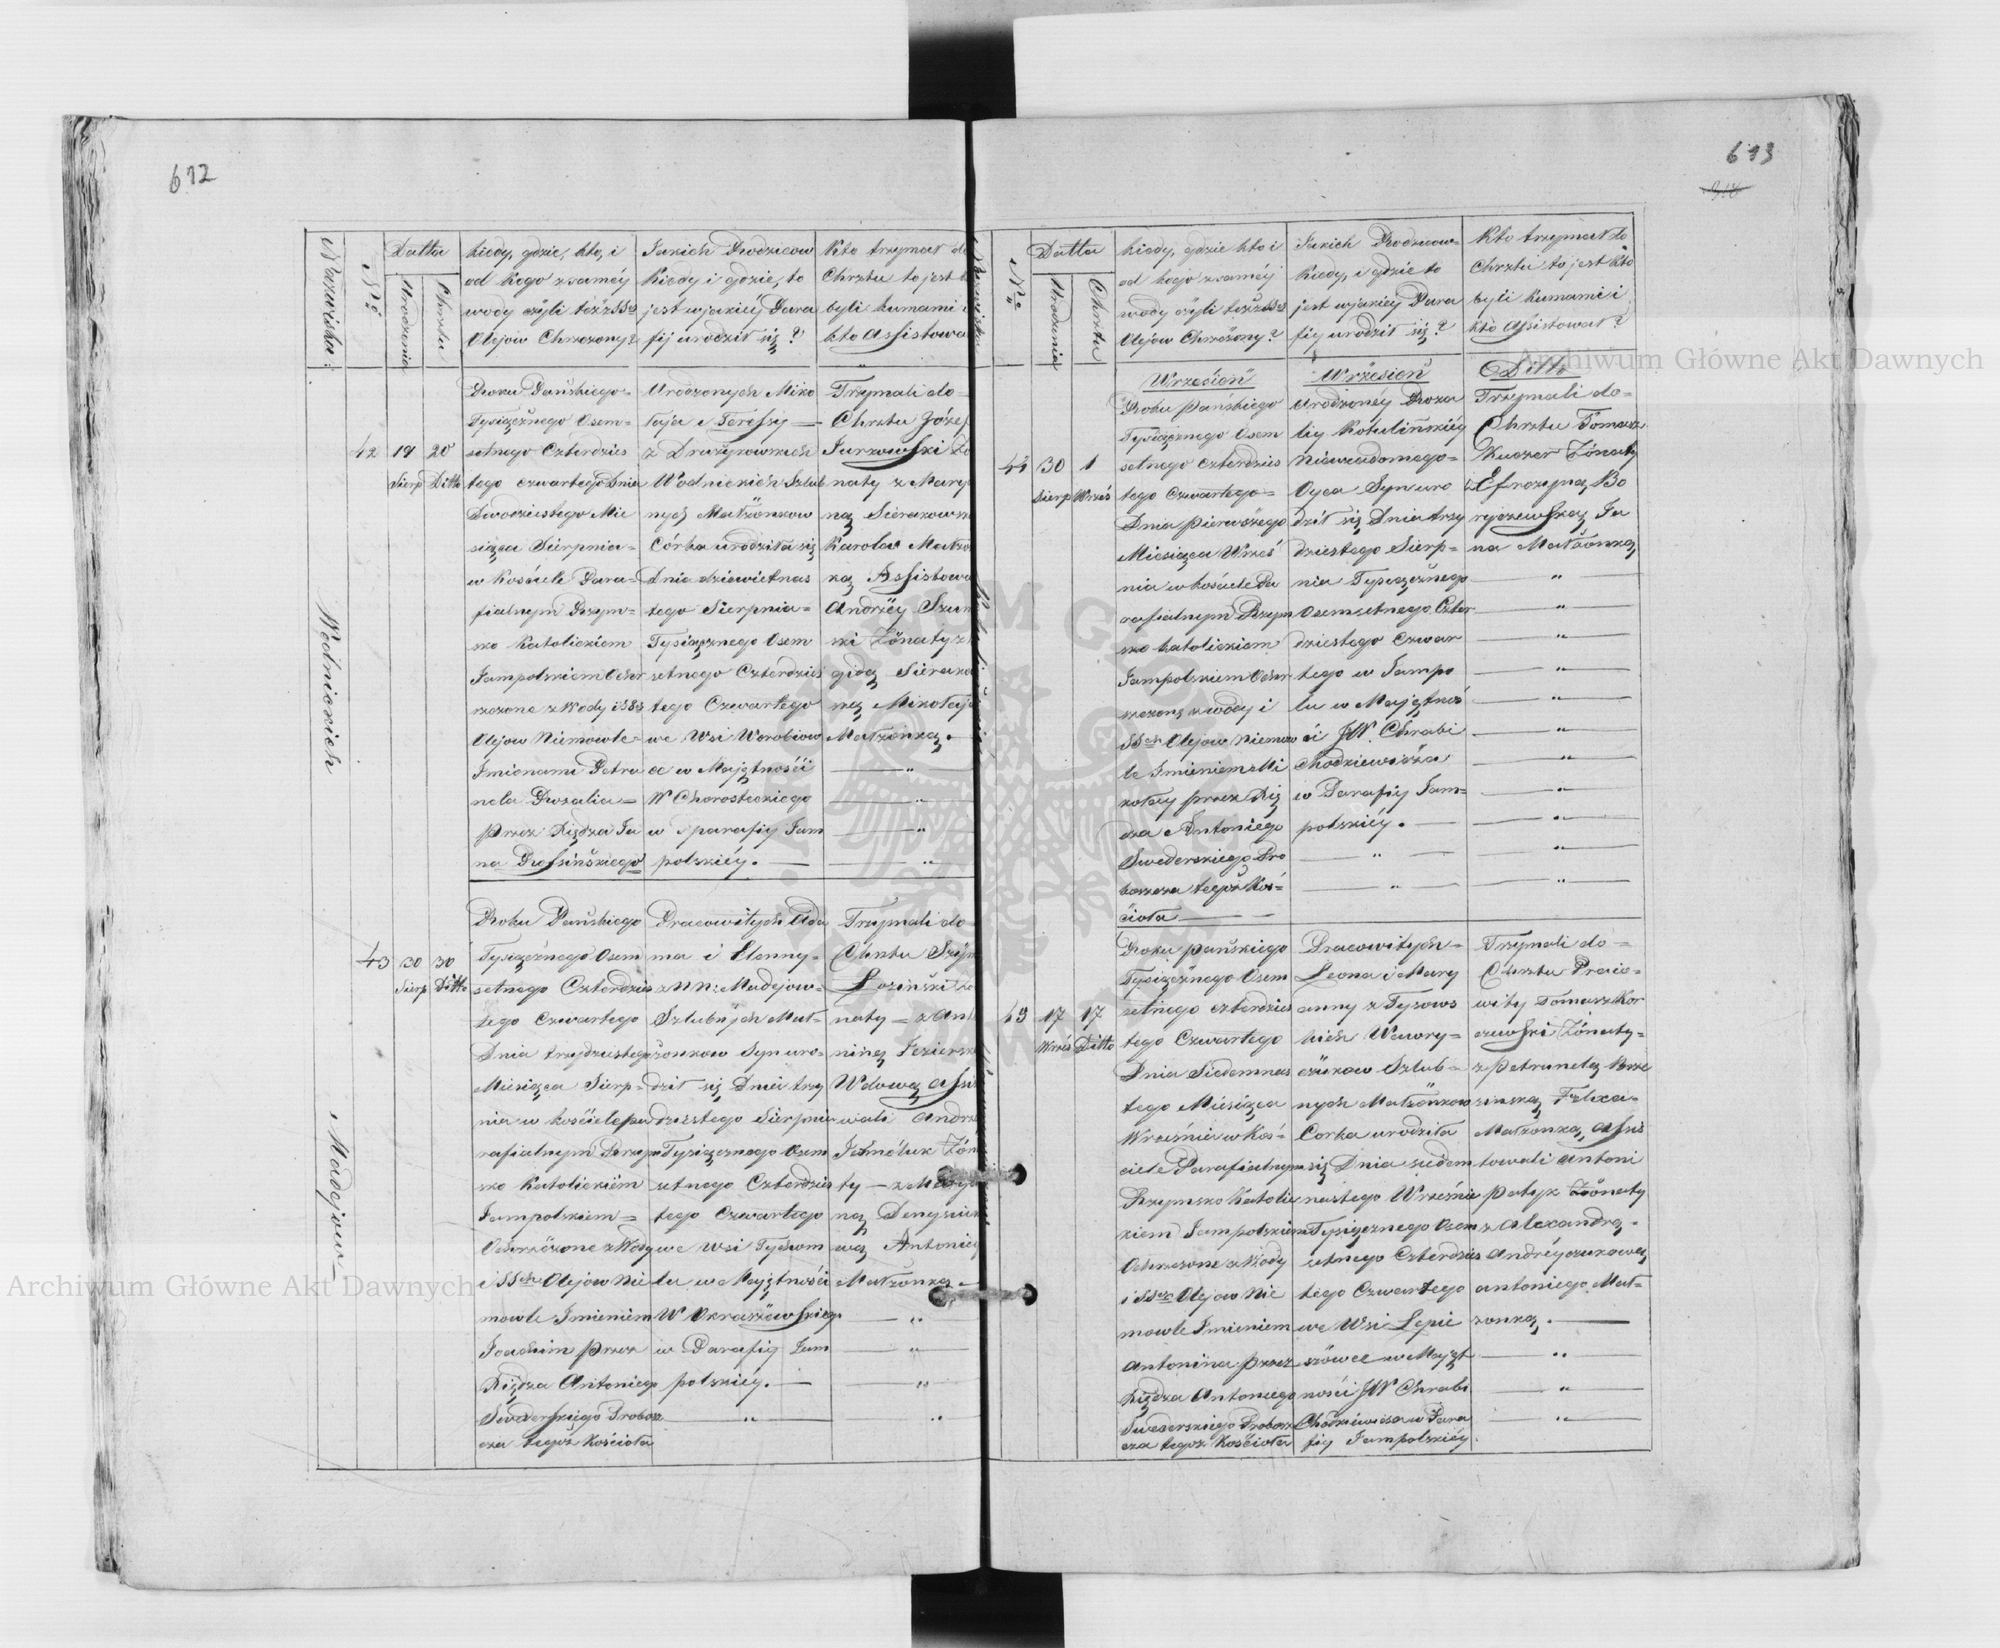 612
Nazwiska:
Nro
Datta
Urodzenia
Chrztu
kiedy, gdzie, kto, i
od kogo z saméy
wody czyli téż z SSch
Olejow Chrzczony?
Jakich Rodzicow
Kiedy i gdzie, to
jest w jakiey Para
fij urodził się?
Kto trzymał do
Chrztu to jest k
byli kumami i
kto Assistowa
Wodnickich
42
19
Sierp
20
Ditto
Roku Pańskiego
Tysiącznego Osem=
setnego Czterdzies
tego czwartego Dnia
Dwódziestego Mie
siąca Sierpnia=
w Kościele Para=
fialnym Rzym=
sko Katolickiem
Jampolskiem Ochr
zczone z Wody i SSch
Olejow Niemowle=
Jmionami Petro
nela Rozalia=
Przez Xiędza Ja
na Rossińskiego
Urodzonych Miko
łaja i Teressy —
z Drużykowskich
Wodnickich Szlub
nych Małżonkow
Córka urodziła się
Dnia dziewietnas
tego Sierpnia=
Tysiącznego Osem
setnego Czterdzies
tego Czwartego
we Wsi Worobiow
ce w Majętności
W Chorosteckiego
w parafij Jam
polskiéy. —
Trzymali do=
Chrztu Józef
Jurkowski Żo
naty z Mary
ną Sierakows
Karola Małżo
ką Assistowa
Andrzéy Szum
ski Żónaty z
gidą Sierako
ną Mikołaja
Małżonką.
Madejow
43
30
Sierp
30
Ditto
Roku Pańskiego
Tysiącznego Osem
setnego Czterdzies
tego Czwartego
Dnia trzydziestego
Miesiąca Sierp=
nia w kościele pa
rafialnym Rzym
sko Katolickiém
Jampolskiem=
Ochrzczone z Wody
i SSch Olejow Nie
mowle Jmieniem
Joachim przez
Xiędza Antoniego
Swederskiego Probosz
cza tegoż Kościoła
Pracowitych Ada
ma i Elenny=
z NN: Madejow=
Szlubnych Mał=
żonkow Syn uro=
dził się Dnia trzy
dziestego Sierpnia
Tysiącznego Osem
setnego Czterdzies
tego Czwartego
we Wsi Tychom
lu w Majętności
W Okraszewskiego
w Parafij Jam
polskiéy. —
Trzymali do
Chrztu Szym
Łoziński Żo
naty — z Ant
niną Jeziersk
Wdową Assis
wali Andrz
Żón
ty — z Mary
ną Denysiuk
wą Antonieg
Małżonką —
613
Nro
Datta
Urodzenia
Chrztu
kiedy, gdzie kto i
od kogo z saméy
wody czyli téż z SSch
Olejow Chrzczony?
Jakich Rodzicow=
Kiedy, i gdzie to
jest w jakiey Para
fij urodził się?
Kto trzymał do
Chrztu to jest kto
byli Kumami i
kto Assistował?
Wrzesień
Wrzesień
Ditto
44
30
Sierp
1
Wrześ
Roku Pańskiego
Tysiącznego Osem
setnego czterdzies
tego Czwartego=
Dnia pierwszego
Miesiąca Wrześ
nia w kościele Pa
rafialnym Rzym
sko katolickiem
Jampolskiem Ochr
zczony z wody i
SSch Olejow Niemow
le Jmieniem Mi
kołay przez Xię
dza Antoniego
Swederskiego Pro
boszcza tegoż Koś=
cioła —
Urodzoney Roza
lij Kotulińskiéy
Niewiadomego=
Oyca Syn uro
dził się Dnia trzy
dziestego Sierp=
nia Tysiącznego
Osemsetnego Czter
dziestego Czwar
tego w Jampo
lu w Majętnoś
ci JW. Chrabi
Chodkiewicza
w Parafij Jam=
polskiéy. —
Trzymali do=
Chrztu Tomasz
Kuczer Żónaty
z Efrozyną Bo
ryszewską Ja
na Małżonką
45
17
Wrześ
17
Ditto
Roku pańskiego
Tysiącznego Osem
setnego czterdzies
tego Czwartego
Dnia Siedemnas
tego Miesiąca
Września w Koś=
ciele Parafialnym
Rzymsko Katolic
kiem Jampolskiem
Ochrzczone z Wody
i SSch Olejow Nie
mowle Jmieniem
Antonina przez
Xiędza Antoniego
Swederskiego Probosz
cza tegoż Kościoła
Pracowitych=
Leona i Mary
anny z Tysows
kich Wawry=
czukow Szlub=
nych Małżonkow
Corka urodziła
się Dnia siedem
nastego Września
Tysiącznego Osem
setnego Czterdzies
tego Czwartego
we Wsi Lepie
szówce w Majęt
ności JW Chrabi
Chodkiewicza w Para
fij Jampolskiéy.
Trzymali do=
Chrztu Praco=
wity Tomasz Kor
czewski Żónaty=
z Petrunelą Brze
zinską Felixa=
Małżonką, Assis
towali Antoni
Patyk Żónaty
z Alexandrą
Andréyczukową
Antoniego Mał=
żonką. —